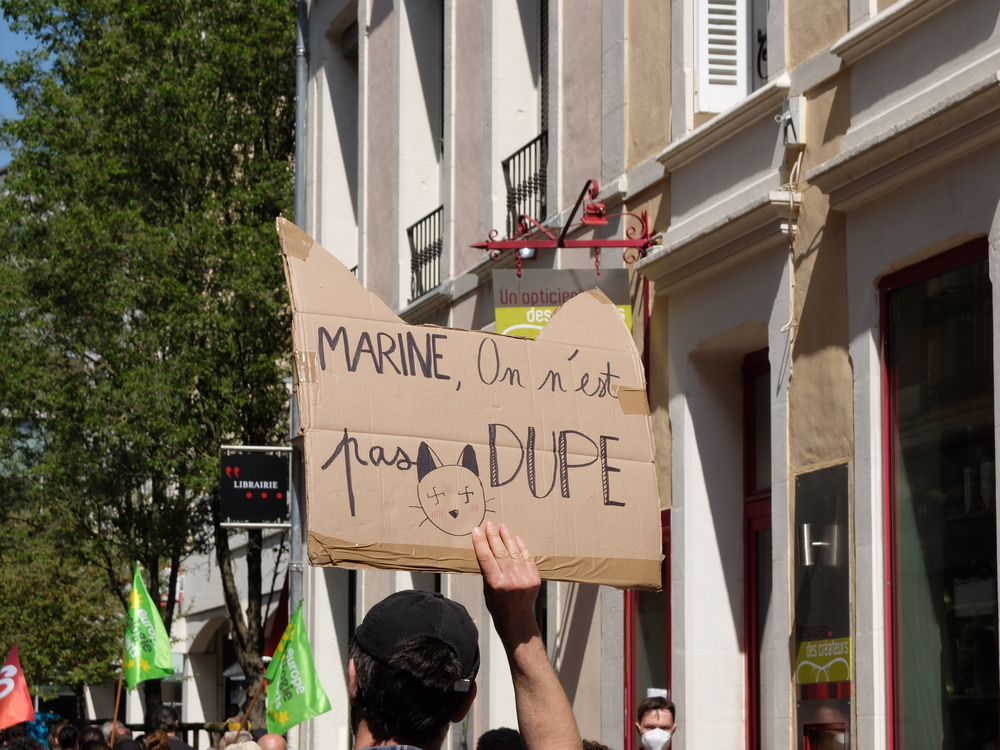 MARINE, On n'est
pas DUPE
Un opticien
des
LIBRAIRIE
europe
europe
des créateurs